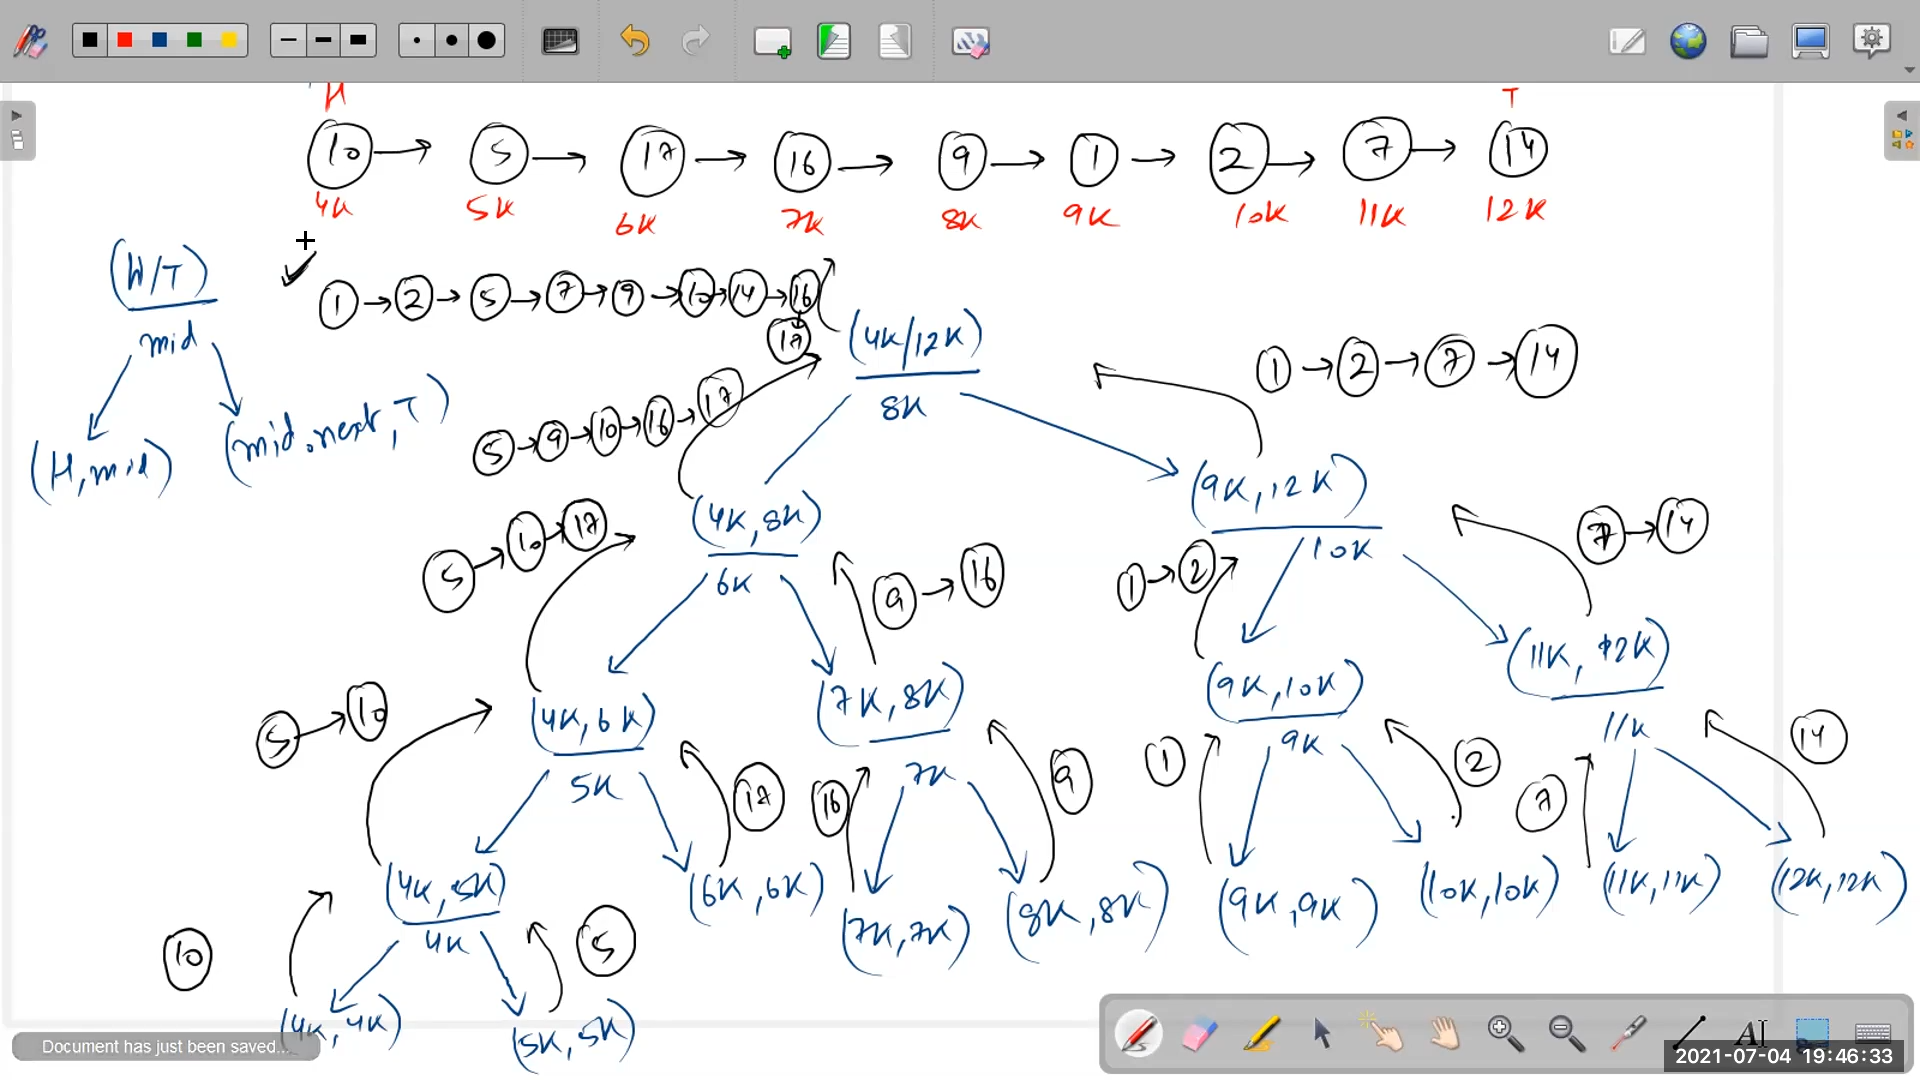 H T
10 → 5 → 17 → 16 → 9 → 1 → 2 → 7 → 14
4K 5K 6K 7K 8K 9K 10K 11K 12K
(H/T)
mid
(H, mid) (mid.next, T)
1 → 2 → 5 → 7 → 9 → 10 → 14 → 16
17
(4K/12K)
8K
1 → 2 → 7 → 14
5 → 9 → 10 → 16 → 17
(4K, 8K)
6K
(9K, 12K)
10K
5 → 10 → 17
9 → 16
1 → 2
7 → 14
(4K, 6K)
5K
(7K, 8K)
7K
(9K, 10K)
9K
(11K, 12K)
11K
5 → 10
17
16
9
1
2
7
14
(4K, 5K)
4K
(6K, 6K)
(7K, 7K)
(8K, 8K)
(9K, 9K)
(10K, 10K)
(11K, 11K)
(12K, 12K)
10
5
(4K, 4K)
(5K, 5K)
Document has just been saved...
2021-07-04 19:46:33